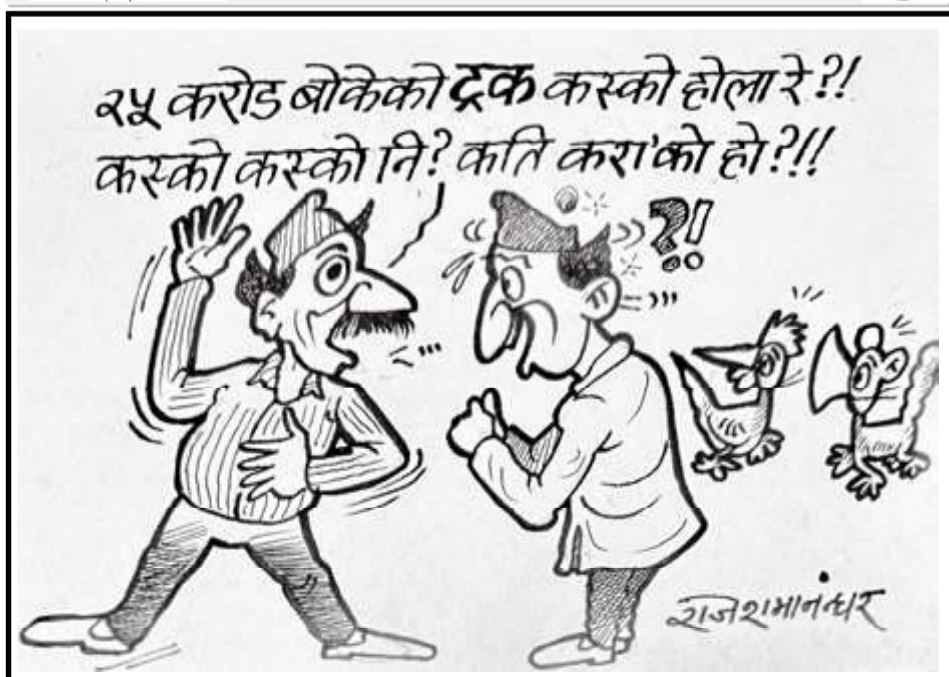 २५ करोड बोकेको ट्रक कस्को होला रे?!
कस्को कस्को नि? कति करा'को हो?!!
?!
राजेश मानन्धर